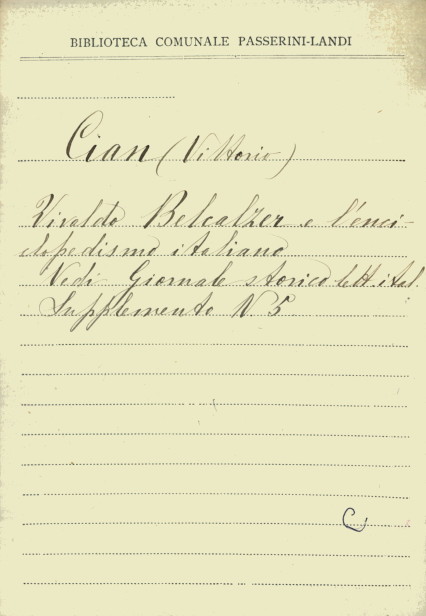 BIBLIOTECA COMUNALE PASSERINI-LANDI
Cian (Vittorio)
Vivaldo Belcalzer e l'enci-
clopedismo italiano
Vedi Giornale storico lett. ital.
Supplemento N 5
C